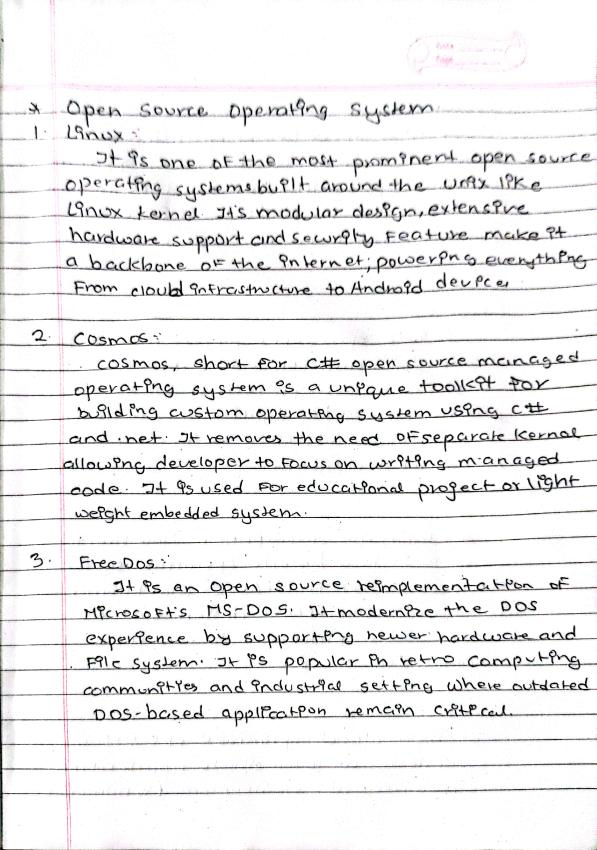 * Open Source Operating System
1. Linux :
It is one of the most prominent open source
operating systems built around the unix like
Linux kernel It's modular design, extensive
hardware support and security feature make it
a backbone of the internet; powering everything
From cloud infrastructure to Android device
2. Cosmos :
COSMOS, short for C# open source managed
operating system is a unique toolkit for
building custom operating system using C#
and .net. It removes the need of separate kernel
allowing developer to focus on writing managed
code. It is used for educational project or light
weight embedded system.
3. Free Dos :
It is an open source reimplementation of
Microsoft's MS-DOS. It modernize the DOS
experience by supporting newer hardware and
File system. It is popular in retro computing
communities and industrial setting where outdated
DOS-based application remain critical.